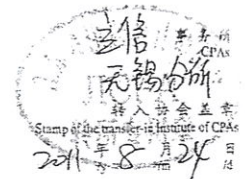 立信 事务所
CPAs
无锡分所
转入协会盖章
Stamp of the transfer-in Institute of CPAs
2011年8月24日